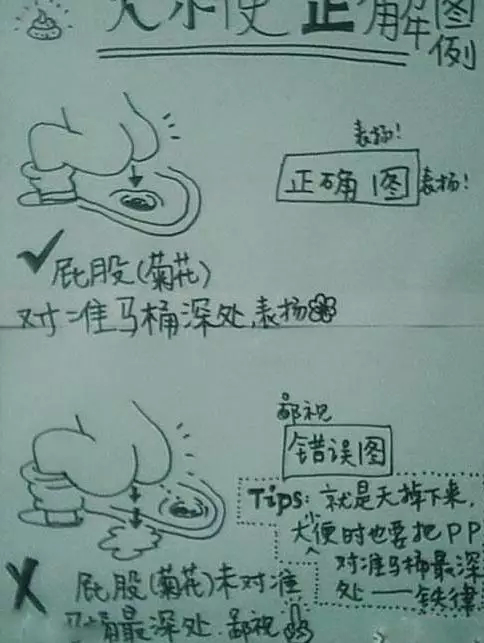 大便正解图例
表扬!
正确图 表扬!
屁股(菊花)
对准马桶深处,表扬
鄙视
错误图
Tips: 就是天掉下来,
大便时也要把PP
对准马桶最深
处——铁律
屁股(菊花)未对准
马桶最深处.鄙视